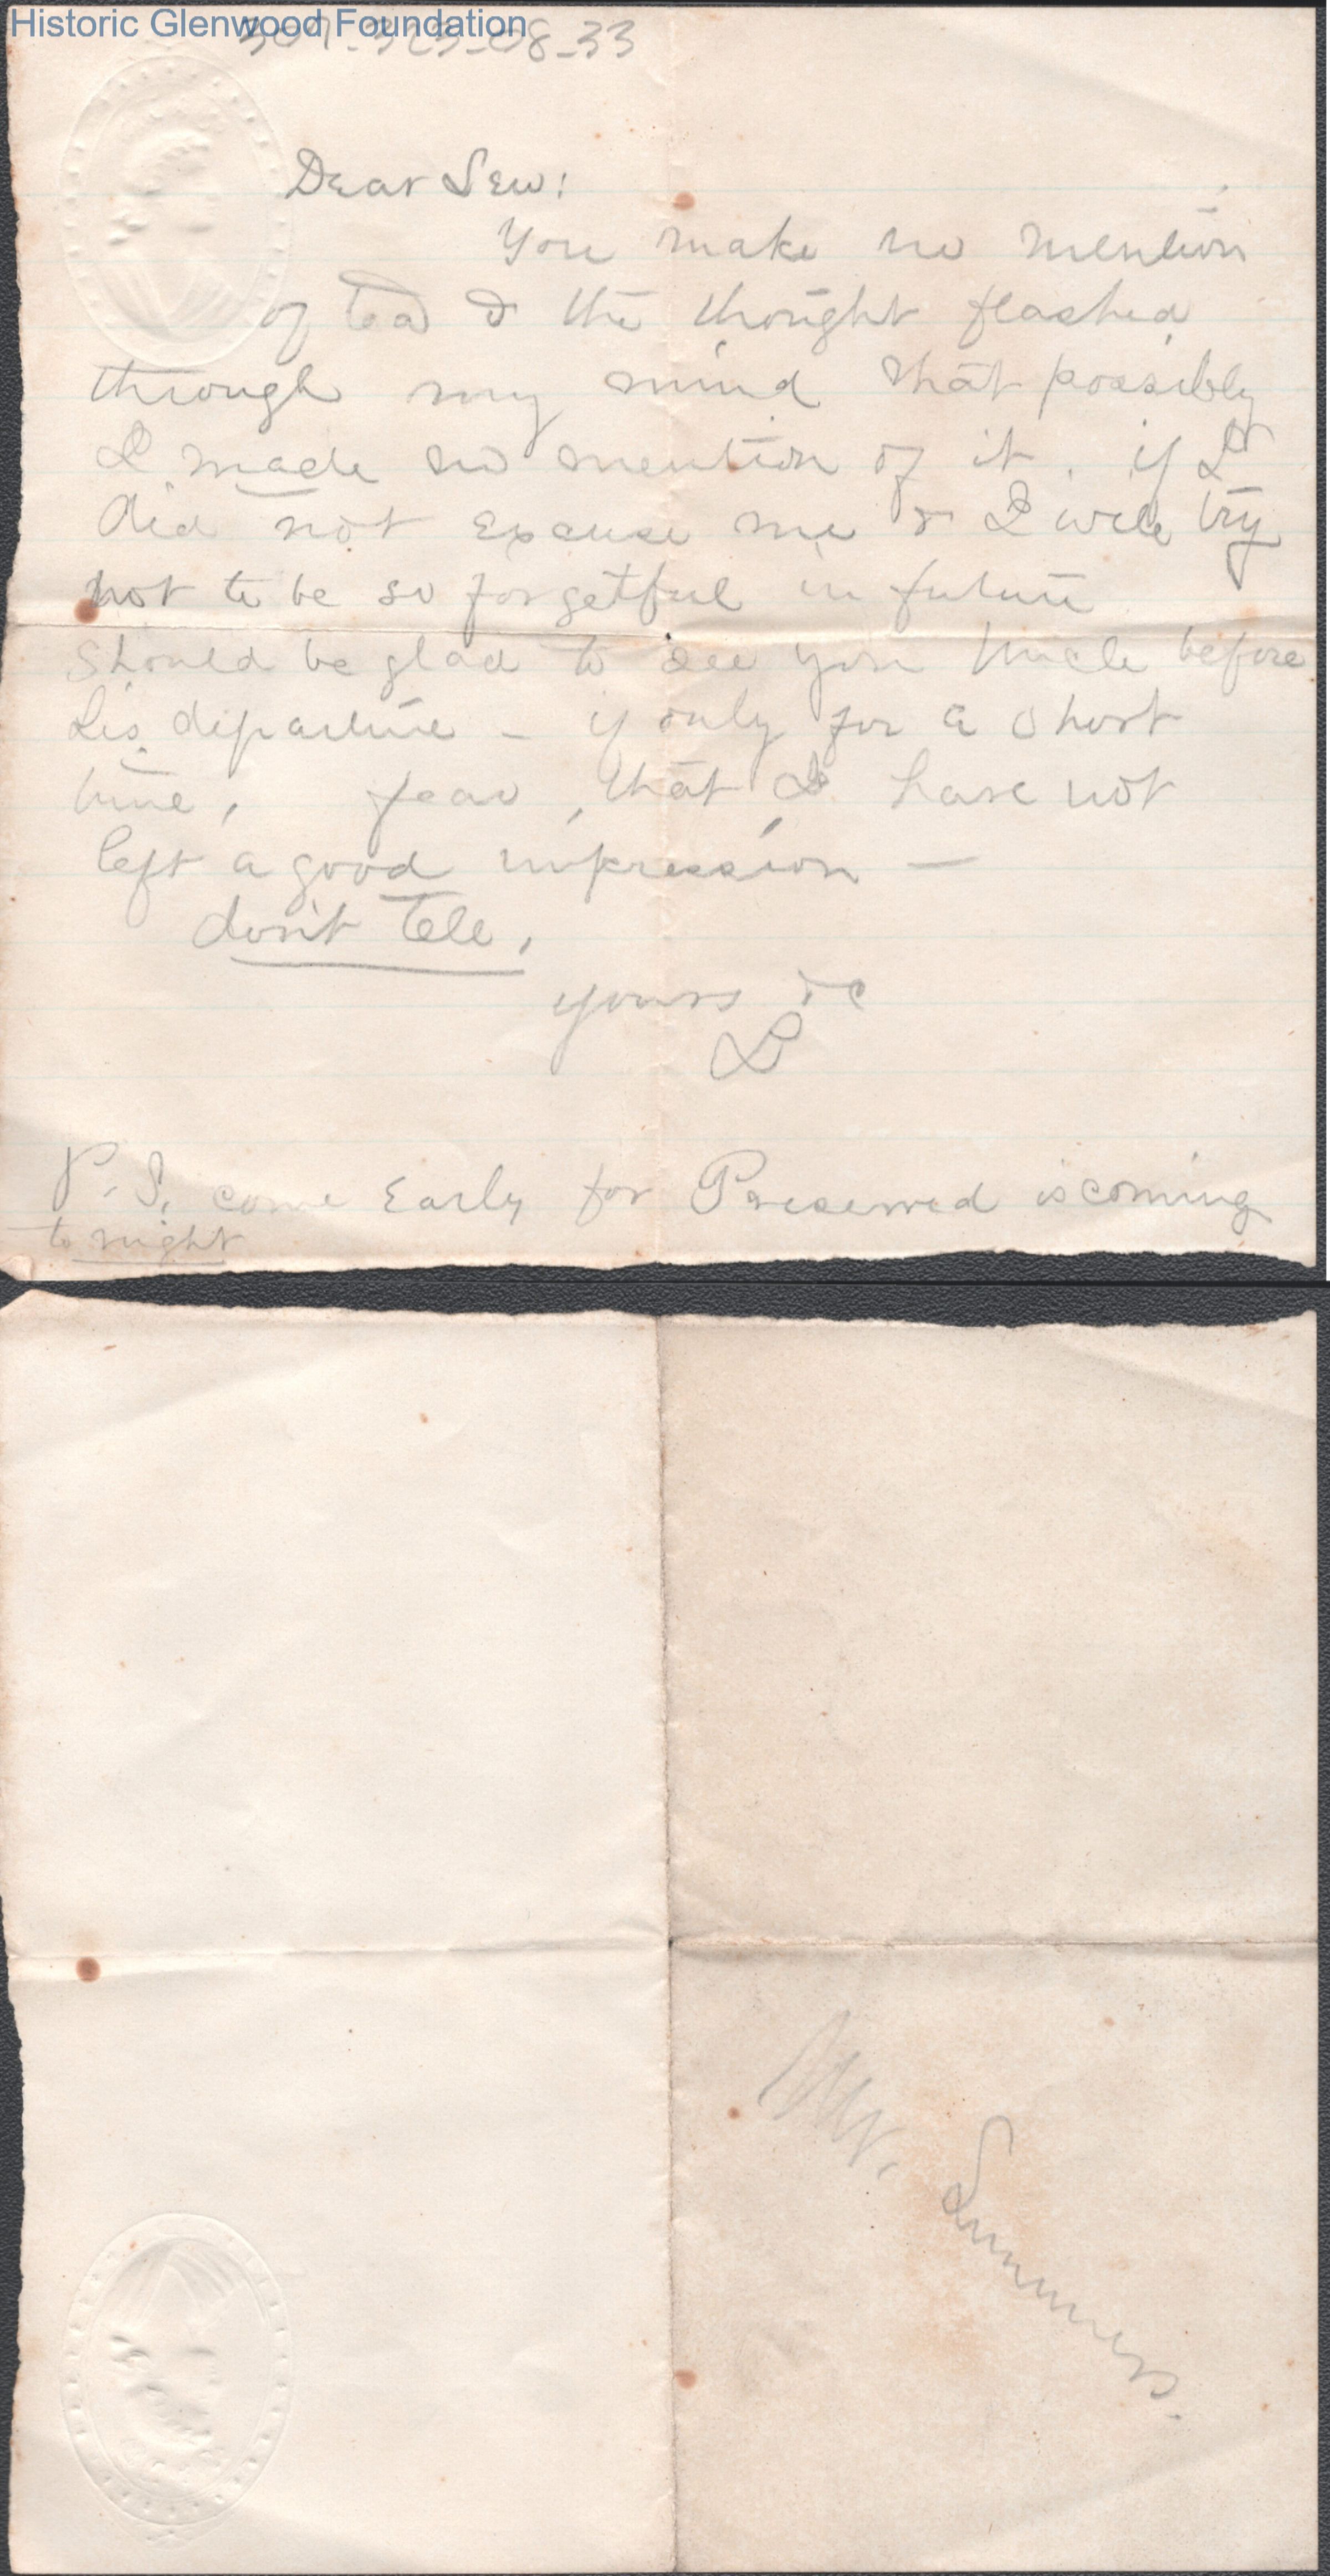 Historic Glenwood Foundation
307-323-08-33
Dear Lew:
You make no mention
of tea & the thought flashed
through my mind that possibly
I made no mention of it. if I
did not excuse me & I will try
not to be so forgetful in future
should be glad to see your Uncle before
his departure - if only for a short
time, fear, that I have not
left a good impression —
don't tell.
yours &c
L
P.S. come Early for Preserved is coming
to night
Mr.